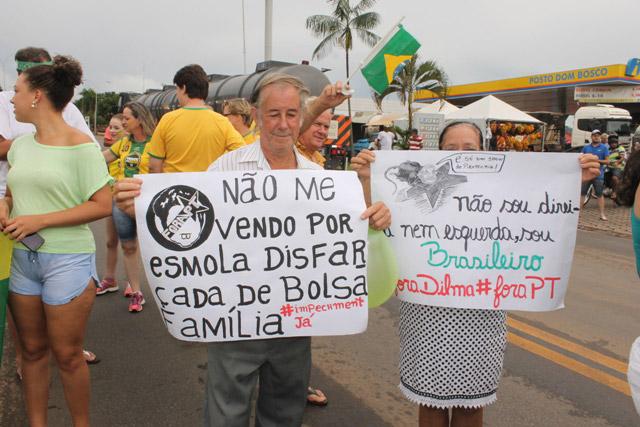 POSTO DOM BOSCO
FORA PT
NÃO ME
VENDO POR
ESMOLA DISFAR
ÇADA DE BOLSA
FAMÍLIA #impechment
Já
não sou direi-
a nem esquerda, sou
Brasileiro
ora Dilma #fora PT